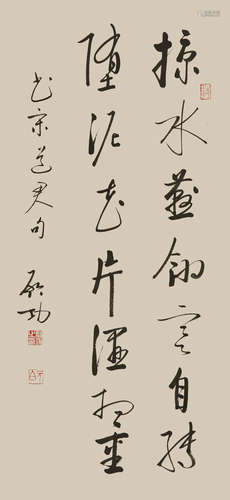 掠水燕翎寒自转
堕泥花片湿相重
书宋道君句
启功